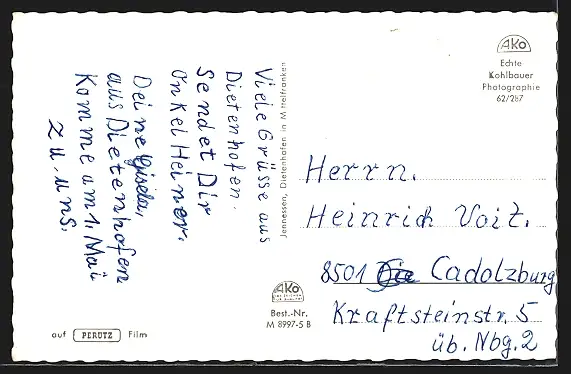 AKO
Echte
Kohlbauer
Photographie
62/287
Viele Grüsse aus
Dietenhofen.
Sendet Dir
Onkel Heiner.
Deine Gisela,
aus Dietenhofen
Komme am 1. Mai
zu uns.
Jennessen, Dietenhofen in Mittelfranken
Herrn.
Heinrich Voit.
8501 Cadolzburg
Kraftsteinstr. 5
üb. Nbg. 2
AKO
Best.-Nr.
M 8997-5 B
auf PERUTZ Film